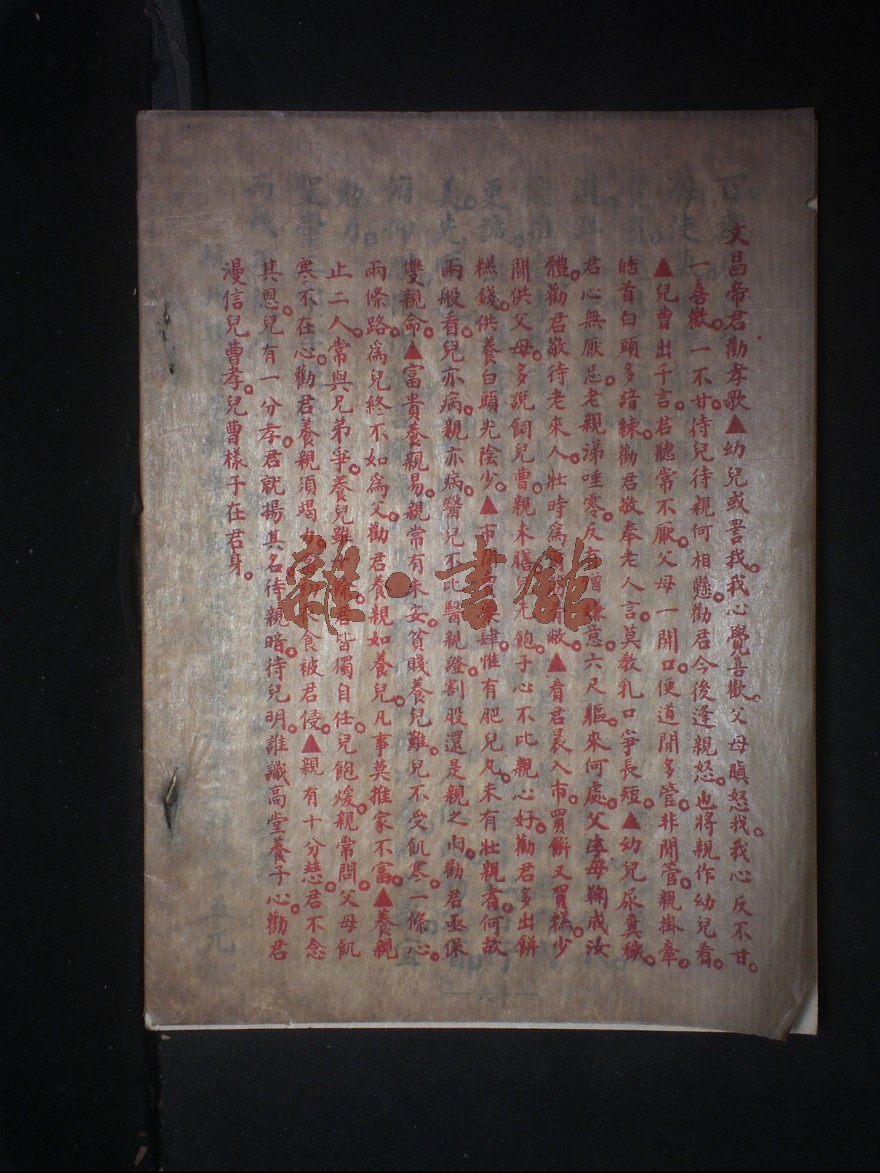 文昌帝君勸孝歌▲幼兒或詈我。我心覺喜歡。父母瞋怒我。我心反不甘。
一喜歡。一不甘。待兒待親何相懸。勸君今後逢親怒。也將親作幼兒看。
▲兒曹出千言。君聽常不厭。父母一開口。便道閒多管。非閒管。親掛牽。
皓首白頭多諳練。勸君敬奉老人言。莫教乳口爭長短。▲幼兒尿糞穢。
君心無厭忌。老親涕唾零。反有憎嫌意。六尺軀。來何處。父精母血成汝
體。勸君敬待老來人。壯時為筋骨敝。▲看君晨入市。買餅又買糕。少
聞供父母。多說飼兒曹。親未膳。兒先飽。子心不比親心好。勸君多出餅
糕錢。供養白頭光陰少。▲市肆惟有肥兒丸。未有壯親者。何故
兩般看。兒亦病。親亦病。醫兒不比醫親證。割股還是親之肉。勸君亟保
雙親命。▲富貴養親易。親常有未安。貧賤養兒難。兒不受飢寒。一條心。
兩條路。為兒終不如為父。勸君養親如養兒。凡事莫推家不富。▲養親
止二人。常與兄弟爭。養兒雖君皆獨自任。兒飽煖。親常問。父母飢
寒不在心。勸君養親須竭力。食被君侵。▲親有十分慈。君不念
其恩。兒有一分孝。君就揚其名。待親暗。待兒明。誰識高堂養子心。勸君
漫信兒曹孝。兒曹樣子在君身。
雜·書館